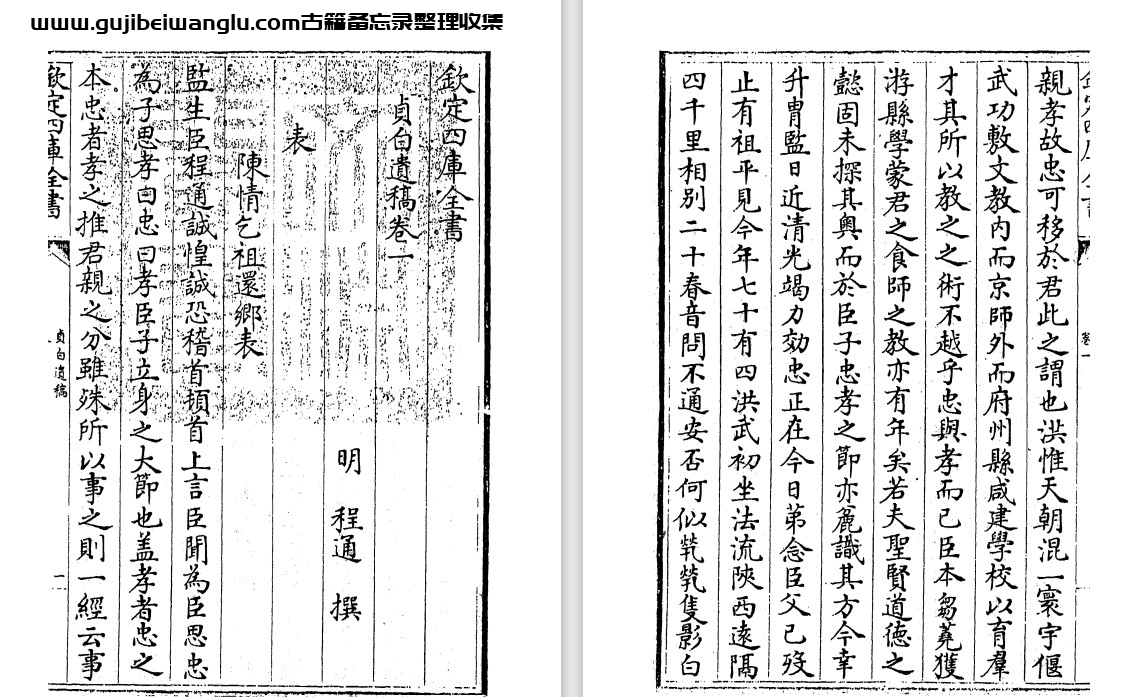 www.gujibeiwanglu.com古籍备忘录整理收集
欽定四庫全書
貞白遺稿卷一
明 程通 撰
表
陳情乞祖還鄉表
監生臣程通誠惶誠恐稽首頓首上言臣聞為臣思忠
為子思孝曰忠曰孝臣子立身之大節也盖孝者忠之
本忠者孝之推君親之分雖殊所以事之則一經云事
欽定四庫全書
貞白遺稿
一
卷一
親孝故忠可移於君此之謂也洪惟天朝混一寰宇偃
武功敷文教内而京師外而府州縣咸建學校以育羣
才其所以教之之術不越乎忠與孝而已臣本芻蕘獲
游縣學蒙君之食師之教亦有年矣若夫聖賢道徳之
懿固未探其奥而於臣子忠孝之節亦麄識其方今幸
升胄監日近清光竭力効忠正在今日第念臣父已殁
止有祖平見今年七十有四洪武初坐法流陜西遠隔
四千里相別二十春音問不通安否何似煢煢隻影白